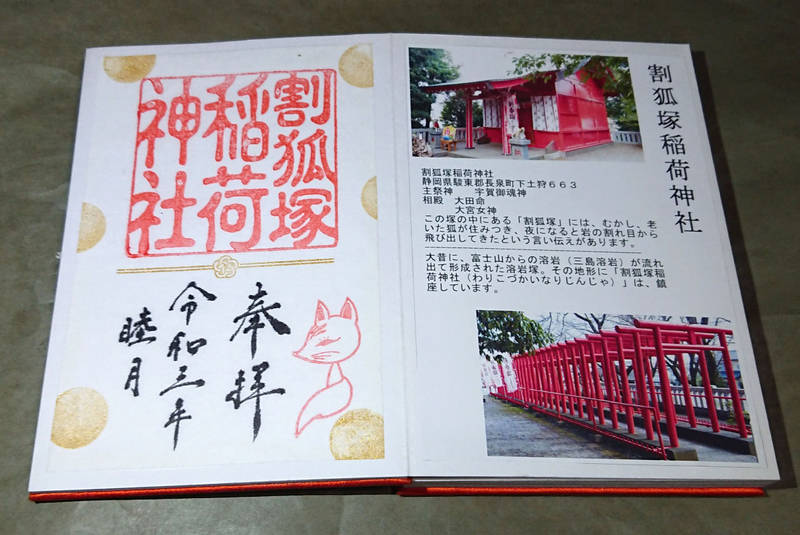 割狐塚
稲荷
神社
奉拝
令和三年
睦月
割狐塚稲荷神社
割狐塚稲荷神社
静岡県駿東郡長泉町下土狩６６３
主祭神　宇賀御魂神
相殿　大田命
大宮女神
この塚の中にある「割狐塚」には、むかし、老
いた狐が住みつき、夜になると岩の割れ目から
飛び出してきたという言い伝えがあります。
大昔に、富士山からの溶岩（三島溶岩）が流れ
出て形成された溶岩塚。その地形に「割狐塚稲
荷神社（わりこづかいなりじんじゃ）」は、鎮
座しています。